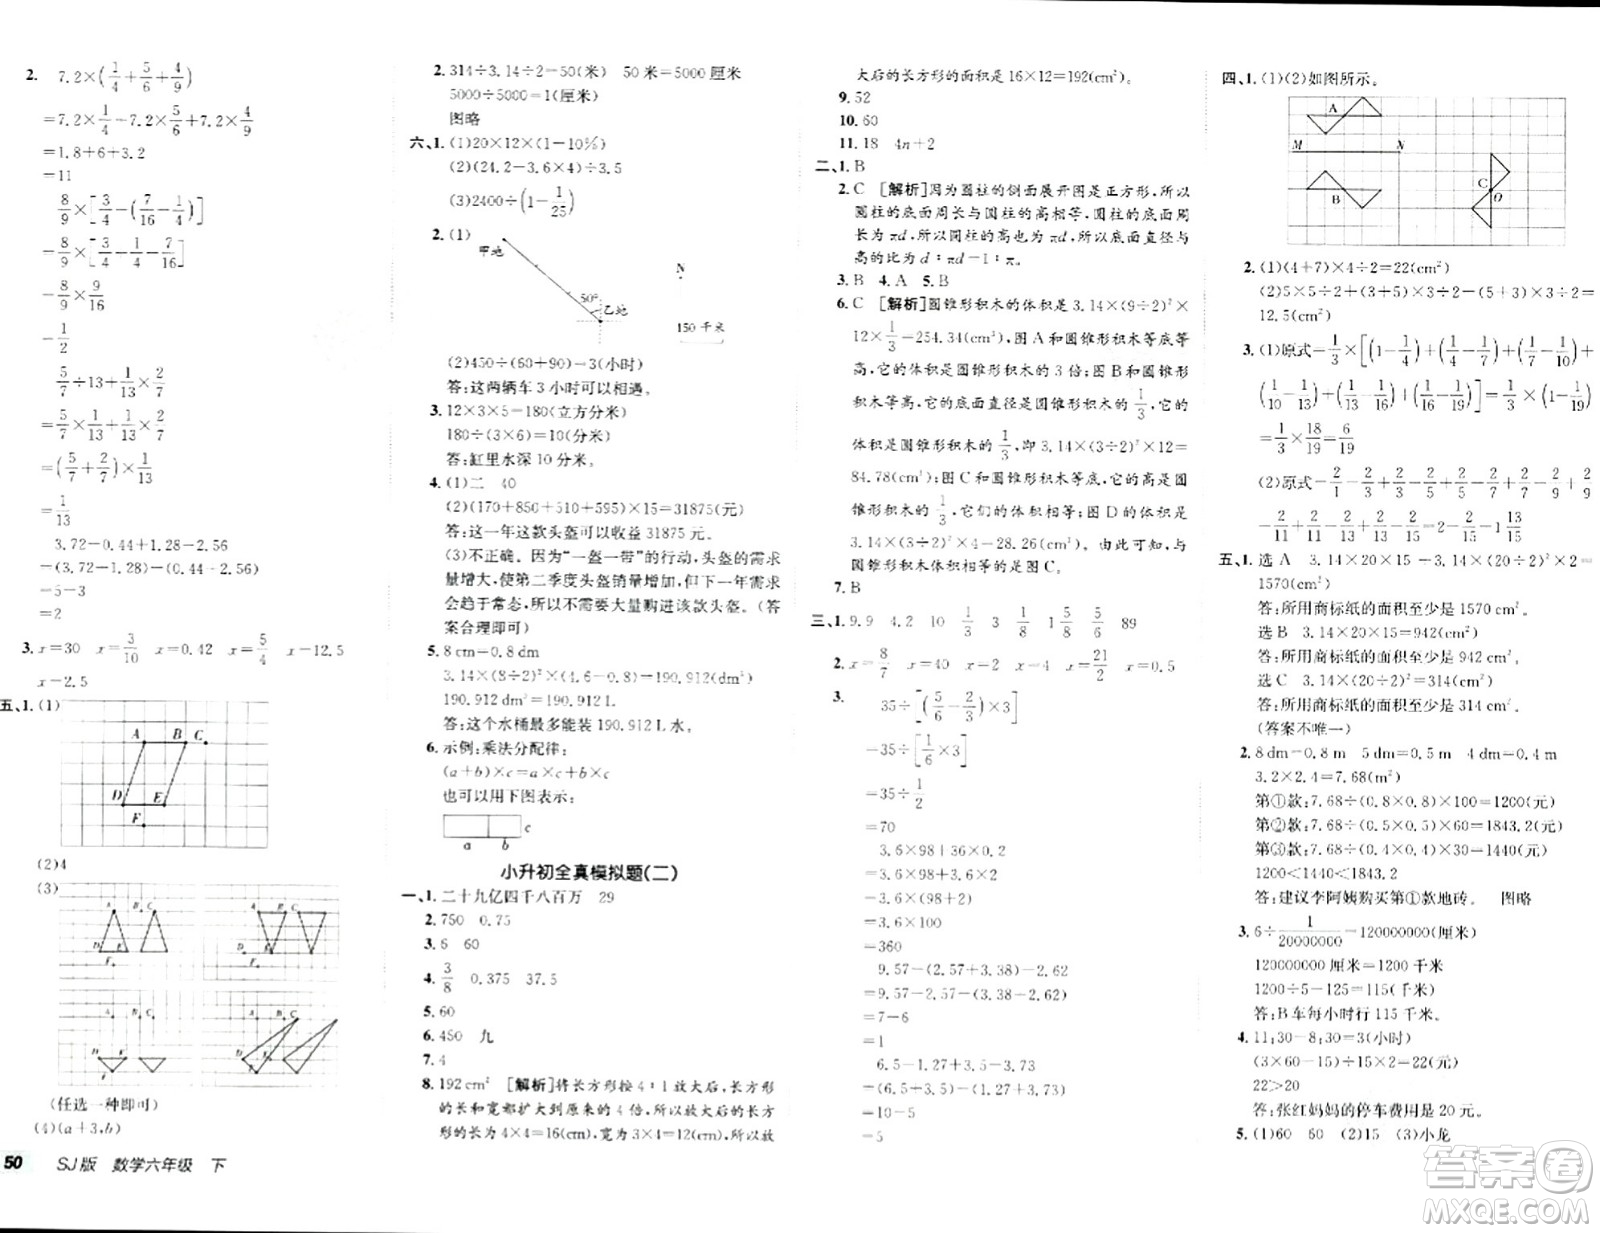 2. 7.2×(1/4+5/6+4/9)
=7.2×1/4-7.2×5/6+7.2×4/9
=1.8+6+3.2
=11
8/9×[3/4-(7/16-1/4)]
-8/9×[3/4+1/4-7/16]
-8/9×9/16
-1/2
5/7÷13+1/13×2/7
-5/7×1/13+1/13×2/7
=(5/7+2/7)×1/13
=1/13
3.72-0.44+1.28-2.56
=(3.72-1.28)-(0.44-2.56)
=5-3
=2
3. x=30 x=3/10 x=0.42 x=5/4 x-12.5
x-2.5
五、1. (1)
A B C
D E
F
(2)4
(3)
(任选一种即可)
(4)(a+3,b)
50 SJ版 数学六年级 下
2. 314÷3.14÷2-50(米) 50米=5000厘米
5000÷5000=1(厘米)
图略
六、1. (1)20×12×(1-10%)
(2)(24.2-3.6×4)÷3.5
(3)2400÷(1-1/25)
2. (1)
甲地
N
50°
乙地
150千米
(2)450÷(60+90)-3(小时)
答:这两辆车3小时可以相遇。
3. 12×3×5-180(立方分米)
180÷(3×6)=10(分米)
答:缸里水深10分米。
4. (1)二 40
(2)(170+850+510+595)×15=31875(元)
答:这一年这款头盔可以收益31875元。
(3)不正确。因为“一盔一带”的行动,头盔的需求
量增大,使第二季度头盔销量增加,但下一年需求
会趋于常态,所以不需要大量购进该款头盔。(答
案合理即可)
5. 8 cm-0.8 dm
3.14×(8÷2)²×(4.6-0.8)=190.912(dm³)
190.912 dm³=190.912 L
答:这个水桶最多能装190.912 L水。
6. 示例:乘法分配律:
(a+b)×c=a×c+b×c
也可以用下图表示:
c
a b
小升初全真模拟题(二)
一、1. 二十九亿四千八百万 29
2. 750 0.75
3. 6 60
4. 3/8 0.375 37.5
5. 60
6. 450 九
7. 4
8. 192 cm² [解析]将长方形按4∶1放大后,长方形
的长和宽都扩大到原来的4倍,所以放大后的长方
形的长为4×4=16(cm),宽为3×4=12(cm),所以放
大后的长方形的面积是16×12=192(cm²)。
9. 52
10. 60
11. 18 4n+2
二、1. B
2. C [解析]因为圆柱的侧面展开图是正方形,所以
圆柱的底面周长与圆柱的高相等,圆柱的底面周
长为πd,所以圆柱的高也为πd,所以底面直径与
高的比为d∶πd-1∶π。
3. B 4. A 5. B
6. C [解析]圆锥形积木的体积是3.14×(9÷2)²×
12×1/3-254.34(cm³),图A和圆锥形积木等底等
高,它的体积是圆锥形积木的3倍;图B与圆锥形
积木等高,它的底面直径是圆锥形积木的1/3,它的
体积是圆锥形积木的1/3,即3.14×(3÷2)²×12=
84.78(cm³);图C和圆锥形积木等底,它的高是圆
锥形积木的1/3,它们的体积相等;图D的体积是
3.14×(3÷2)²×4-28.26(cm³)。由此可知,与
圆锥形积木体积相等的是图C。
7. B
三、1. 9.9 4.2 10 1/3 3 1/8 1 5/8 5/6 89
2. x=8/7 x=40 x-2 x=4 x=21/2 x=0.5
3. 35÷[(5/6-2/3)×3]
-35÷[1/6×3]
-35÷1/2
=70
3.6×98+36×0.2
=3.6×98+3.6×2
=3.6×(98+2)
=3.6×100
=360
9.57-(2.57+3.38)-2.62
=9.57-2.57-(3.38-2.62)
=7-6
=1
6.5-1.27+3.5-3.73
=(6.5+3.5)-(1.27+3.73)
=10-5
=5
四、1. (1)(2)如图所示。
A
M N
B
C
O
2. (1)(4+7)×4÷2=22(cm²)
(2)5×5÷2+(3+5)×3÷2-(5+5+3)×3÷2=
12.5(cm²)
3. (1)原式=1/3×[(1-1/4)+(1/4-1/7)+(1/7-1/10)+
(1/10-1/13)+(1/13-1/16)+(1/16-1/19)]-1/3×(1-1/19)
=1/3×18/19=6/19
(2)原式=2/1-2/3+2/3-2/5+2/5-2/7+2/7-2/9+2/9-
2/11+2/11-2/13+2/13-2/15=2-2/15-1 13/15
五、1. 选A 3.14×20×15-3.14×(20÷2)²×2=
1570(cm²)
答:所用商标纸的面积至少是1570 cm²。
选B 3.14×20×15=942(cm²)
答:所用商标纸的面积至少是942 cm²。
选C 3.14×(20÷2)²=314(cm²)
答:所用商标纸的面积至少是314 cm²。
(答案不唯一)
2. 8 dm=0.8 m 5 dm=0.5 m 4 dm=0.4 m
3.2×2.4=7.68(m²)
第①款:7.68÷(0.8×0.8)×100=1200(元)
第②款:7.68÷(0.5×0.5)×60=1843.2(元)
第③款:7.68÷(0.4×0.8)×60=1440(元)
1200<1440<1843.2
答:建议李阿姨购买第①款地砖。 图略
3. 6÷1/20000000=120000000(厘米)
120000000厘米=1200千米
1200÷5-125=115(千米)
答:B车每小时行115千米。
4. 11:30-8:30=3(小时)
(3×60-15)÷15×2=22(元)
22>20
答:张红妈妈的停车费用是20元。
5. (1)60 60 (2)15 (3)小龙
答案圈
MXQE.COM